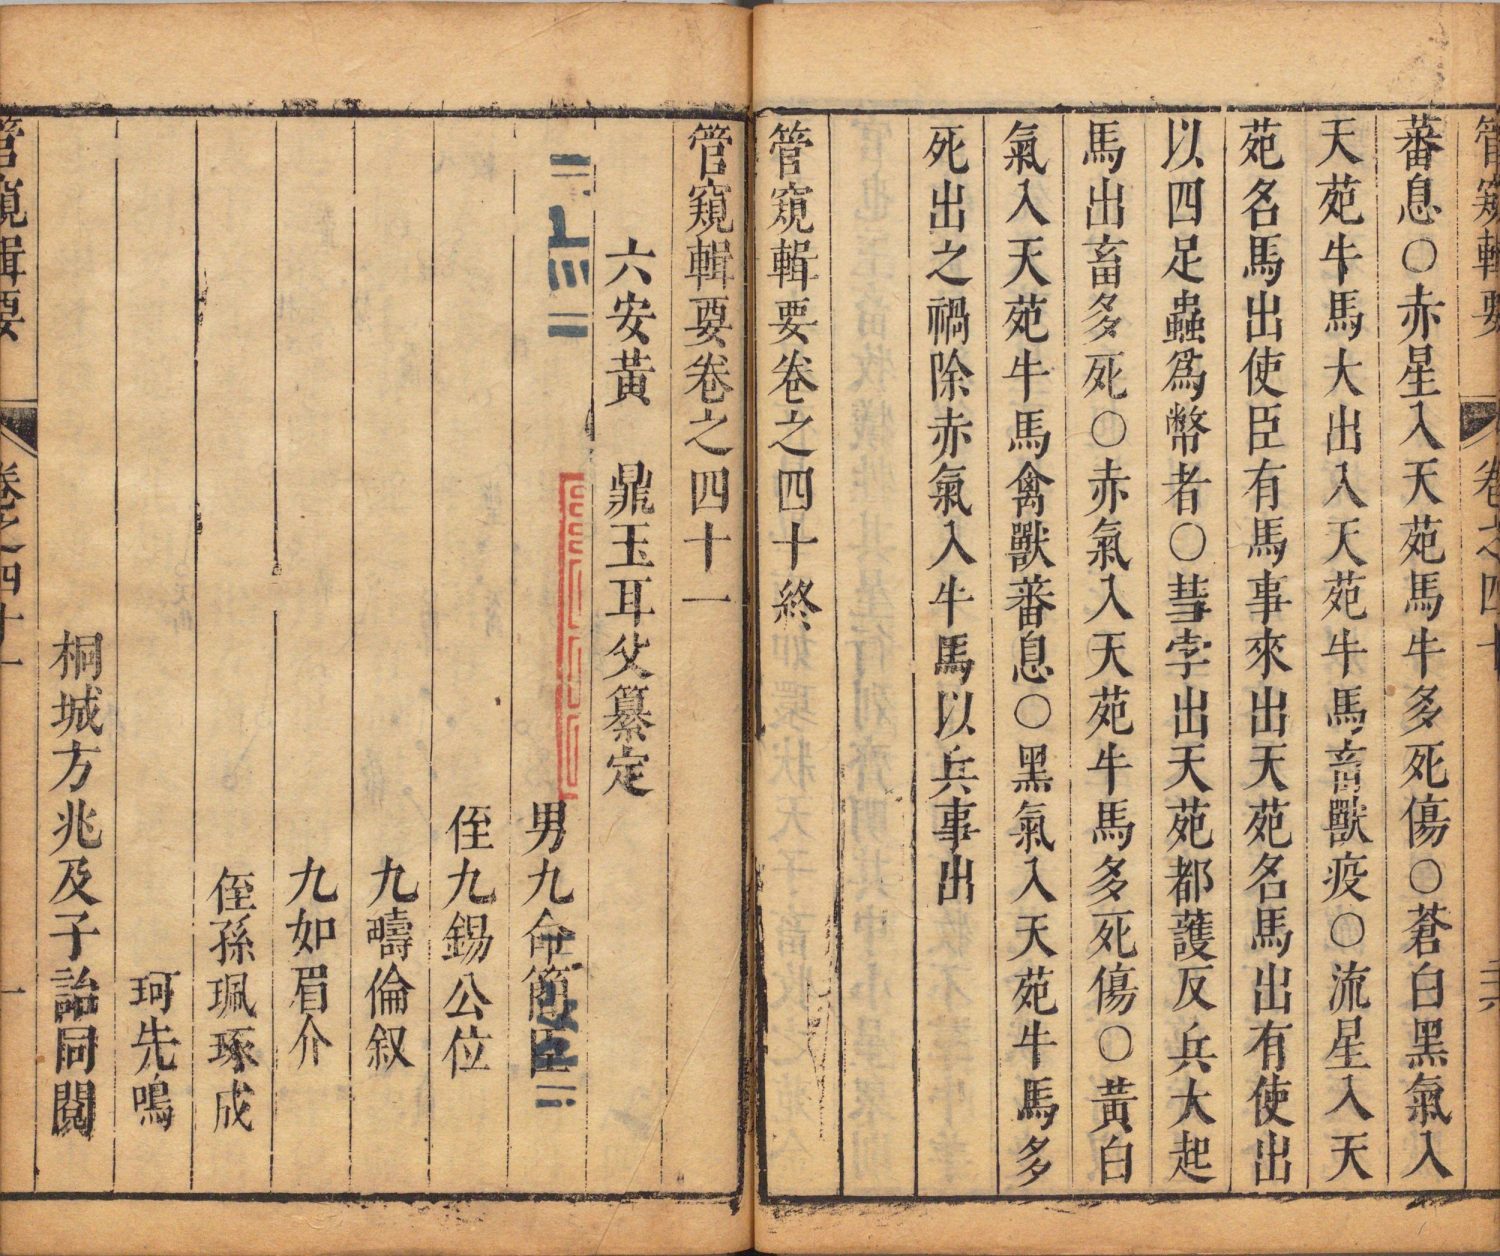 管窺輯要 卷之四十
蕃息○赤星入天苑馬牛多死傷○蒼白黑氣入
天苑牛馬大出入天苑牛馬畜獸疫○流星入天
苑名馬出使臣有馬事來出天苑名馬出有使出
以四足蟲爲幣者○彗孛出天苑都護反兵大起
馬出畜多死○赤氣入天苑牛馬多死傷○黃白
氣入天苑牛馬禽獸蕃息○黑氣入天苑牛馬多
死出之禍除赤氣入牛馬以兵事出
管窺輯要卷之四十終
管窺輯要卷之四十一
六安黃 鼎玉耳父纂定
男九命簡臣
侄九錫公位
九疇倫叙
九如眉介
侄孫珮琢成
珂先鳴
桐城方兆及子詒同閱
管窺輯要 卷之四十一 一